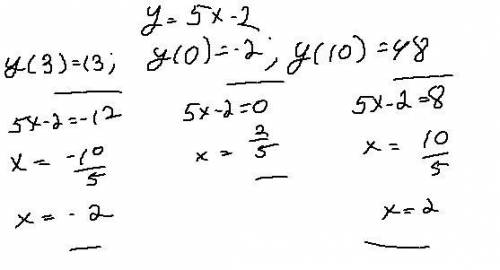 y = 5x - 2
y(3) = 13; y(0) = -2; y(10) = 48
5x - 2 = -12 5x - 2 = 0 5x - 2 = 8
x = -10/5 x = 2/5 x = 10/5
x = - 2 x = 2